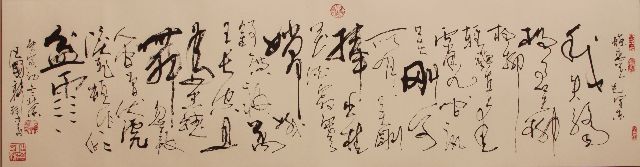 我失骄
杨君失柳
杨柳
轻飏直上重
霄九问讯
吴刚何
所有吴刚
捧出桂
花酒寂寞
嫦娥
舒广袖万
里长空且
为忠魂
舞忽报
人间曾伏虎
泪飞顿作倾
盆雨